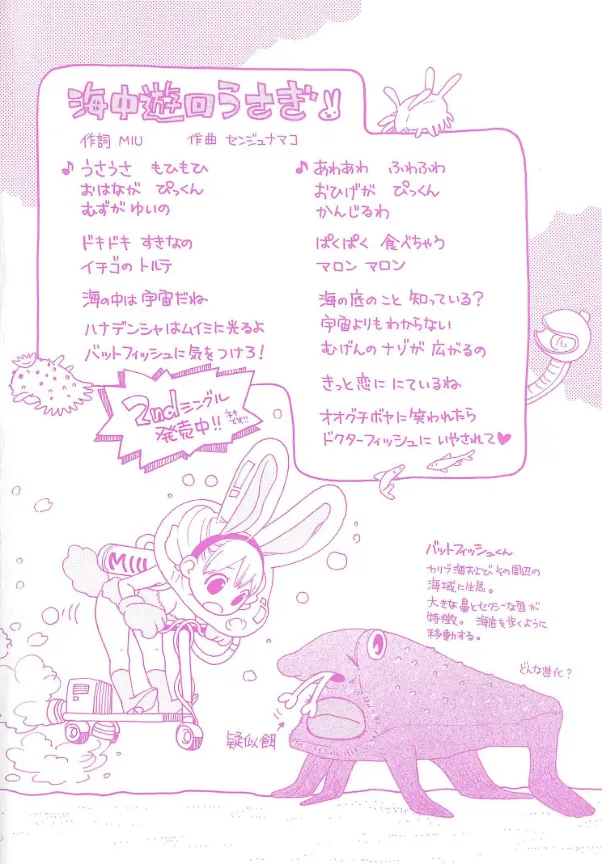 海中遊回うさぎ
作詞 MIU 作曲 センジュナマコ
♪うさうさ もひもひ
おはなが ぴっくん
むずがゆいの
ドキドキ すきなの
イチゴの トルテ
海の中は 宇宙だね
ハナデンシャはムイミに光るよ
バットフィッシュに気をつけろ!
♪あわあわ ふわふわ
おひげが ぴっくん
かんじるわ
ぱくぱく 食べちゃう
マロン マロン
海の底のこと 知っている?
宇宙よりもわからない
むげんのナゾが 広がるの
きっと恋に にているね
オオグチボヤに笑われたら
ドクターフィッシュに いやされて♥
2ndシングル
発売中!!
ネタです!!
MIU
バットフィッシュくん
カリブ海およびその周辺の
海域に生息。
大きな鼻とセクシーな唇が
特徴。海底を歩くように
移動する。
どんな進化?
疑似餌